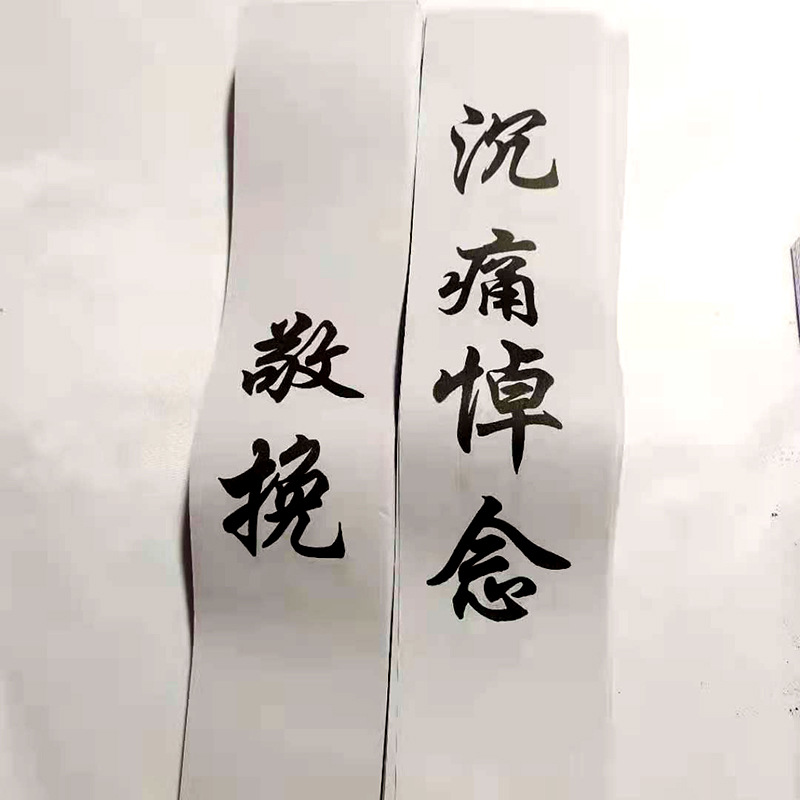 沉痛悼念
敬挽